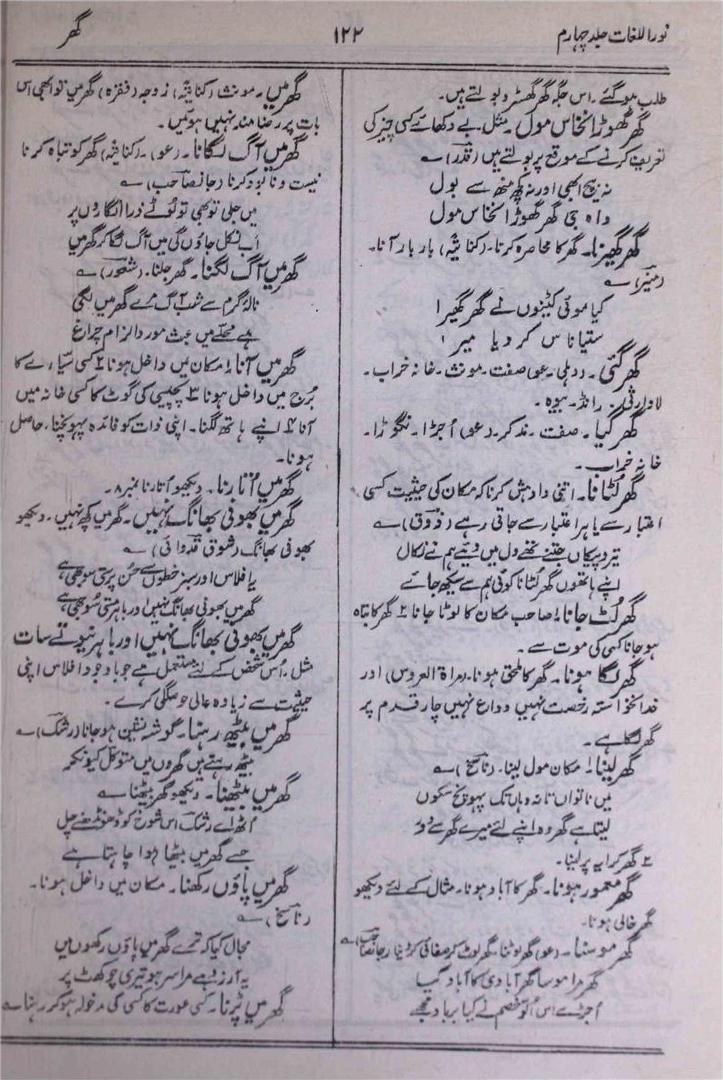 نوراللغات جلد چہارم
۱۲۲
گھر
طلب ہوگئے۔ اس جگہ گھر گھسڑو بولتے ہیں۔
گھر گھوڑا نخاس مول۔ مثل۔ بے دکھائے کسی چیز کی
تعریف کرنے کے موقع پر بولتے ہیں (قدر) ؎
نہ بیچ ابھی اور نہ کچھ منھ سے بول
واہ جی گھر گھوڑا نخاس مول
گھر گھیرنا۔ گھر کا محاصرہ کرنا۔ (کنایۃً) بار بار آنا۔
(میر) ؎
کیا موئی کٹنیوں نے گھر گھیرا
ستیاناس کر دیا میرا
گھر گئی۔ (دہلی۔ عو) صفت۔ مونث۔ خانہ خراب۔
لاوارثی۔ رانڈ۔ بیوہ۔
گھر گیا۔ صفت۔ مذکر۔ (عو) اُجڑا۔ نگوڑا۔
خانہ خراب۔
گھر لُٹانا۔ اتنی داد دہش کرنا کہ مکان کی حیثیت کسی
اعتبار سے یا ہر اعتبار سے جاتی رہے (ذوق) ؎
تیر و پیکاں جتنے تھے دل میں دیئے ہم نے نکال
اپنے ہاتھوں گھر لُٹانا کوئی ہم سے سیکھ جائے
گھر لُٹ جانا ۱ صاحب مکان کا لوٹا جانا ۲ گھر کا تباہ
ہو جانا کسی کی موت سے۔
گھر لگا ہونا۔ گھر کا ملحق ہونا۔ (مراۃ العروس) اور
خدانخواستہ رخصت نہیں وداع نہیں چار قدم پر
گھر لگا ہے۔
گھر لینا ۱ مکان مول لینا۔ (ناسخ) ؎
میں ناتواں تا نہ وہاں تک پہونچ سکوں
لیتا ہے گھر وہ اپنے لئے میرے گھر سے دور
۲ گھر کرایہ پر لینا۔
گھر معمور ہونا۔ گھر کا آباد ہونا۔ مثال کے لئے دیکھو
گھر خالی ہونا۔
گھر موسنا۔ (عو) گھر لوٹنا۔ گھر لوٹ کر صفائی کر دینا (جانصاحب) ؎
گھر مرا موسا گھر آبادی کا آباد کیا
اُجڑے اس اُلّو خصم نے کیا برباد مجھے
گھر میں۔ مونث (کنایۃً) زوجہ (فقرہ) گھر میں تو ابھی اس
بات پر رضامند نہیں ہوئیں۔
گھر میں آگ لگانا۔ (عو)۔ (کنایۃً) گھر کو تباہ کرنا
نیست و نابود کرنا (جانصاحب) ؎
میں جلی تو بھی تو لوٹے ذرا انگاروں پر
اب نکل جاؤں گی میں آگ لگا کر گھر میں
گھر میں آگ لگنا۔ گھر جلنا۔ (شعور) ؎
نالۂ گرم سے شب آگ مرے گھر میں لگی
ہے محلے میں عبث مورد الزام چراغ
گھر میں آنا ۱ مکان میں داخل ہونا ۲ کسی سیارے کا
برج میں داخل ہونا ۳ پچیسی کی گوٹ کا کسی خانہ میں
آنا ۴ اپنے ہاتھ لگنا۔ اپنی ذات کو فائدہ پہونچنا، حاصل
ہونا۔
گھر میں اُتارنا۔ دیکھو اتارنا نمبر ۸۔
گھر میں بھونی بھانگ نہیں۔ گھر میں کچھ نہیں۔ دیکھو
بھونی بھانگ (شوق قدوائی) ؎
یا فلاس اور سبز خطوں سے حسن پرستی سوجھی ہے
گھر میں بھونی بھانگ نہیں اور باہر مستی سوجھی ہے
گھر میں بھونی بھانگ نہیں اور باہر نیوتے سات
مثل۔ اُس شخص کے لئے مستعمل ہے جو باوجود افلاس اپنی
حیثیت سے زیادہ عالی حوصلگی کرے۔
گھر میں بیٹھ رہنا۔ گوشہ نشین ہو جانا (رشک) ؎
بیٹھ رہتے ہیں گھروں میں متوکل کیونکر
گھر میں بیٹھنا۔ دیکھو گھر بیٹھنا ؎
اُٹھ اے رشک اس شوخ کو ڈھونڈھنے چل
جسے گھر میں بیٹھا ہوا چاہتا ہے
گھر میں پاؤں رکھنا۔ مکان میں داخل ہونا۔
(ناسخ) ؎
مجال کیا کہ ترے گھر میں پاؤں رکھوں میں
یہ آرزو ہے مرا سر ہو تیری چوکھٹ پر
گھر میں پڑنا۔ کسی عورت کا کسی کی مدخولہ ہوکر رہنا ؎